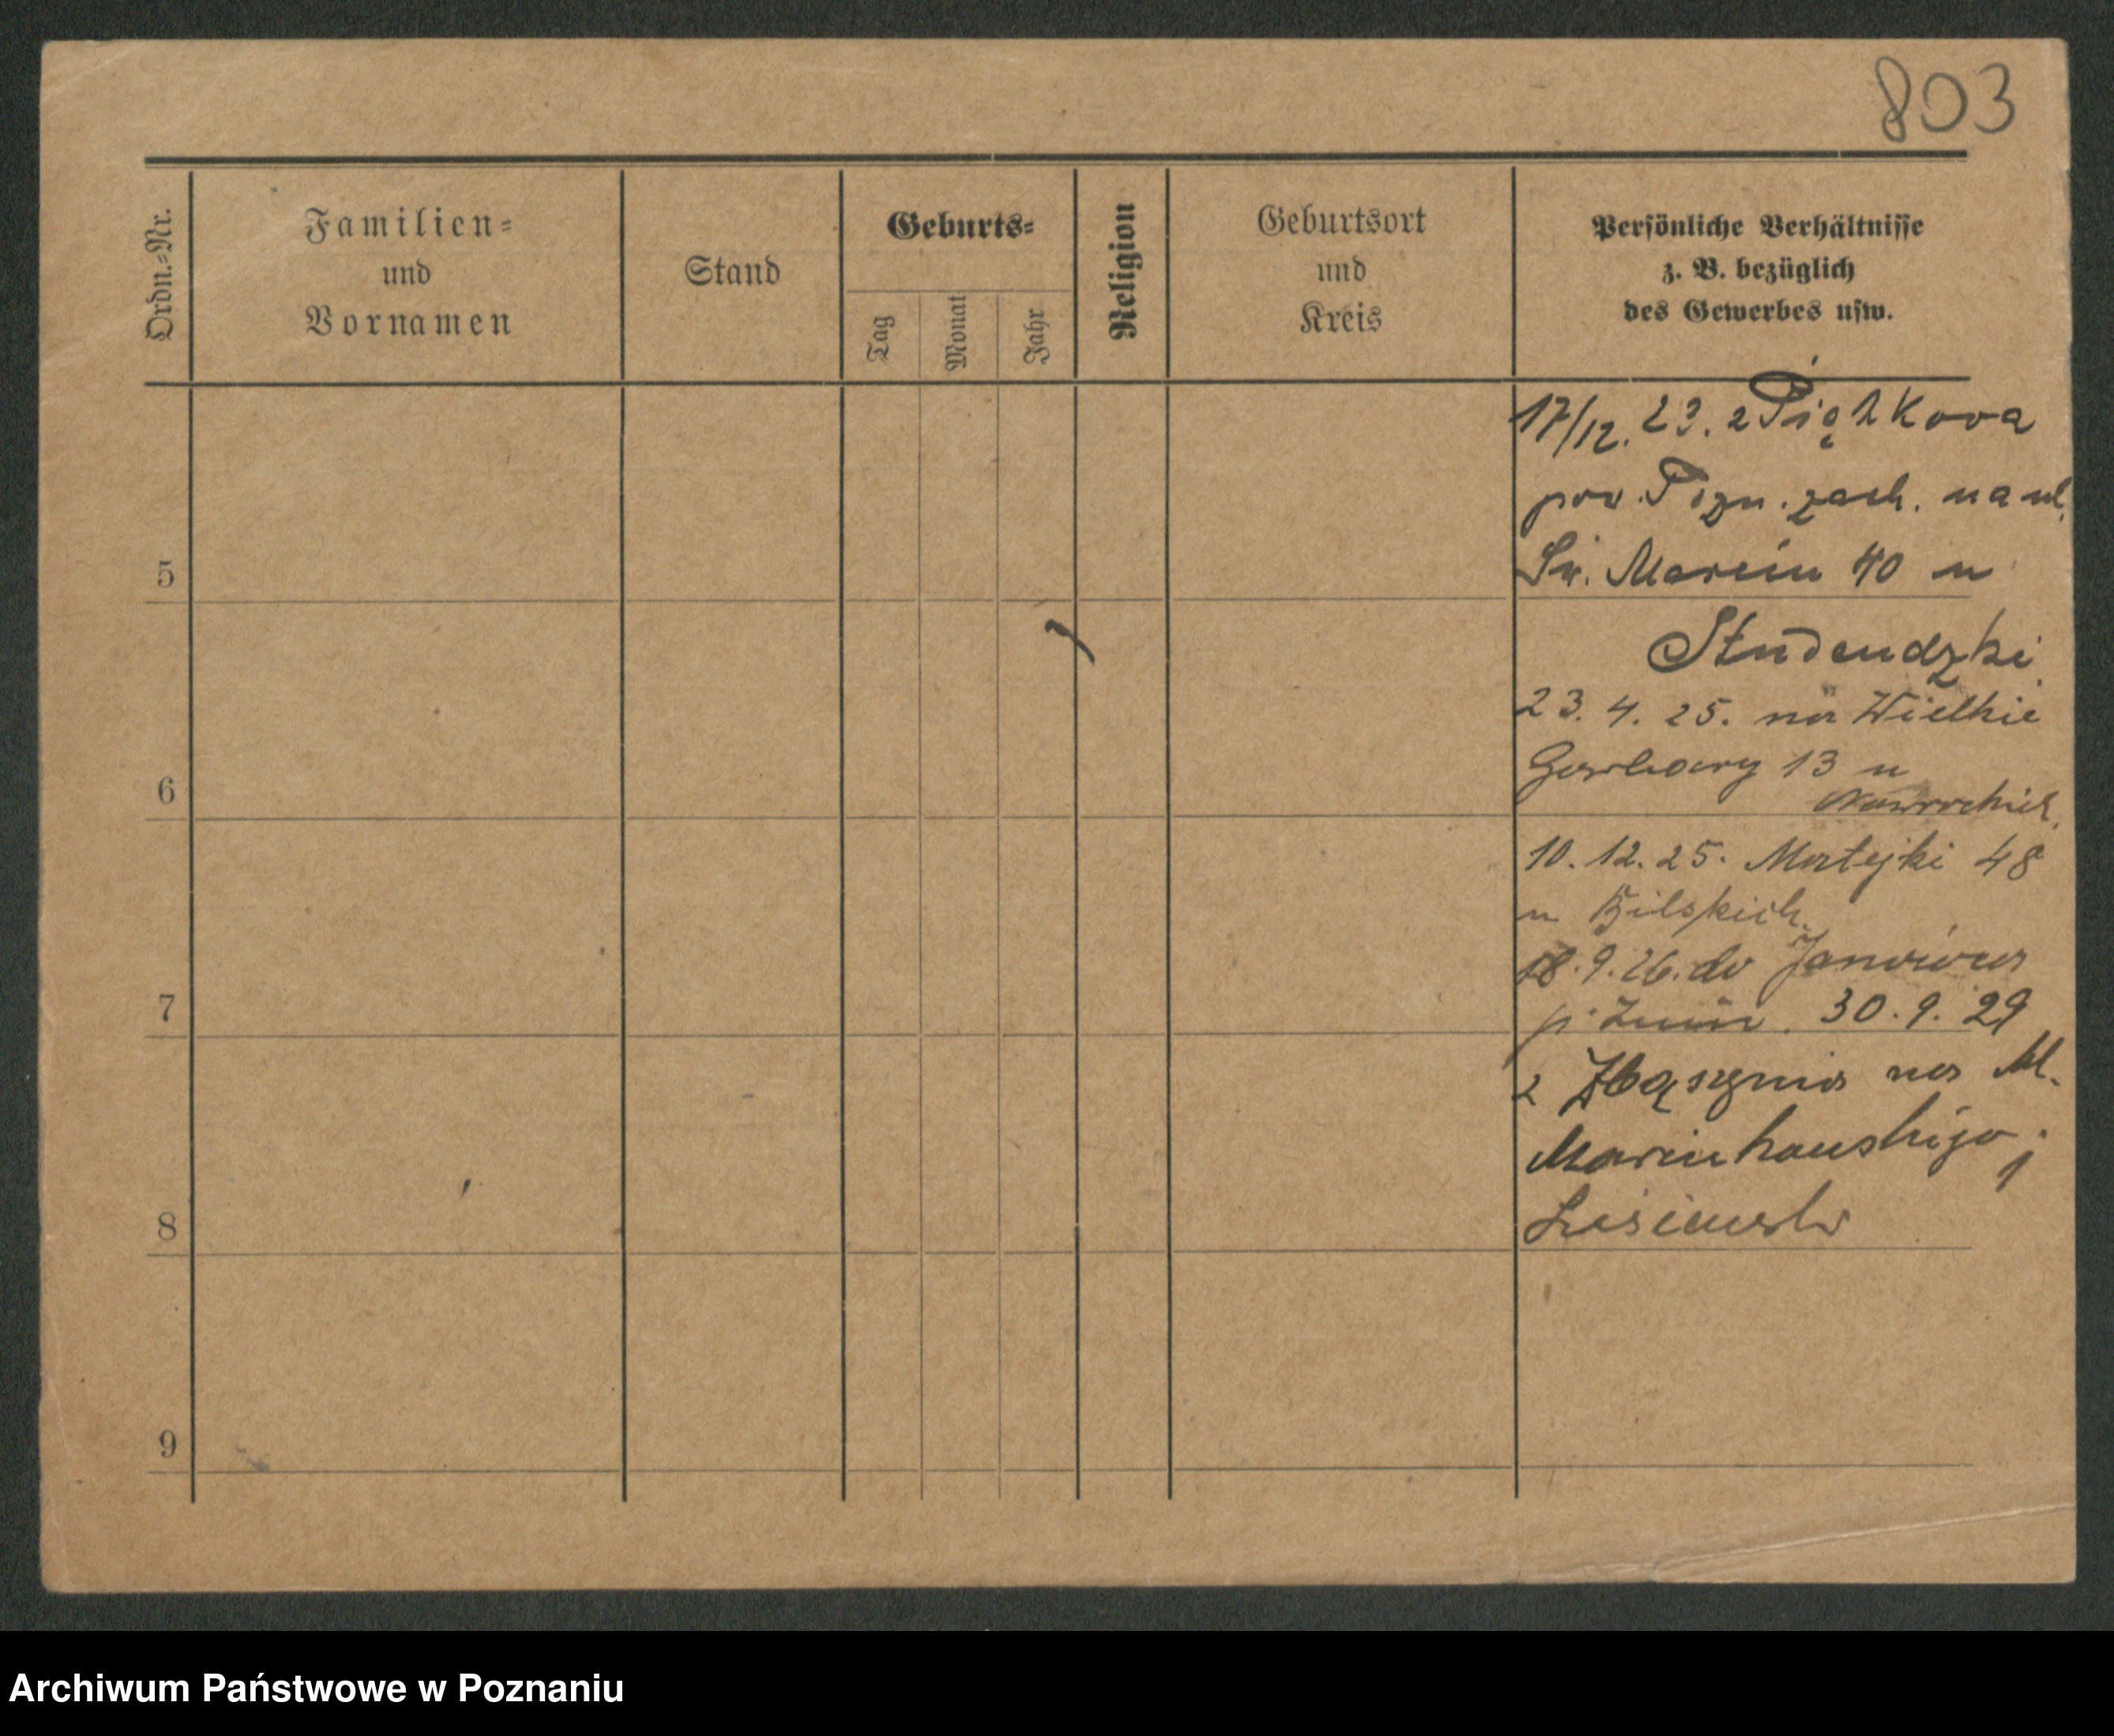 803
Ordn.-Nr.
Familien-
und
Vornamen
Stand
Geburts-
Tag
Monat
Jahr
Religion
Geburtsort
und
Kreis
Persönliche Verhältnisse
z. B. bezüglich
des Gewerbes usw.
17/12. 23. z
pow. Pozn. zach. na ul.
Św. Marcin 40 u
5
23. 4. 25. na Wielkie
Garbary 13 u
6
10. 12. 25. Matejki 48
u Bilskich.
18. 9. 26. do Janówca
7
p. Żnin. 30. 9. 29
z Zbąszynia na
8
9
Archiwum Państwowe w Poznaniu